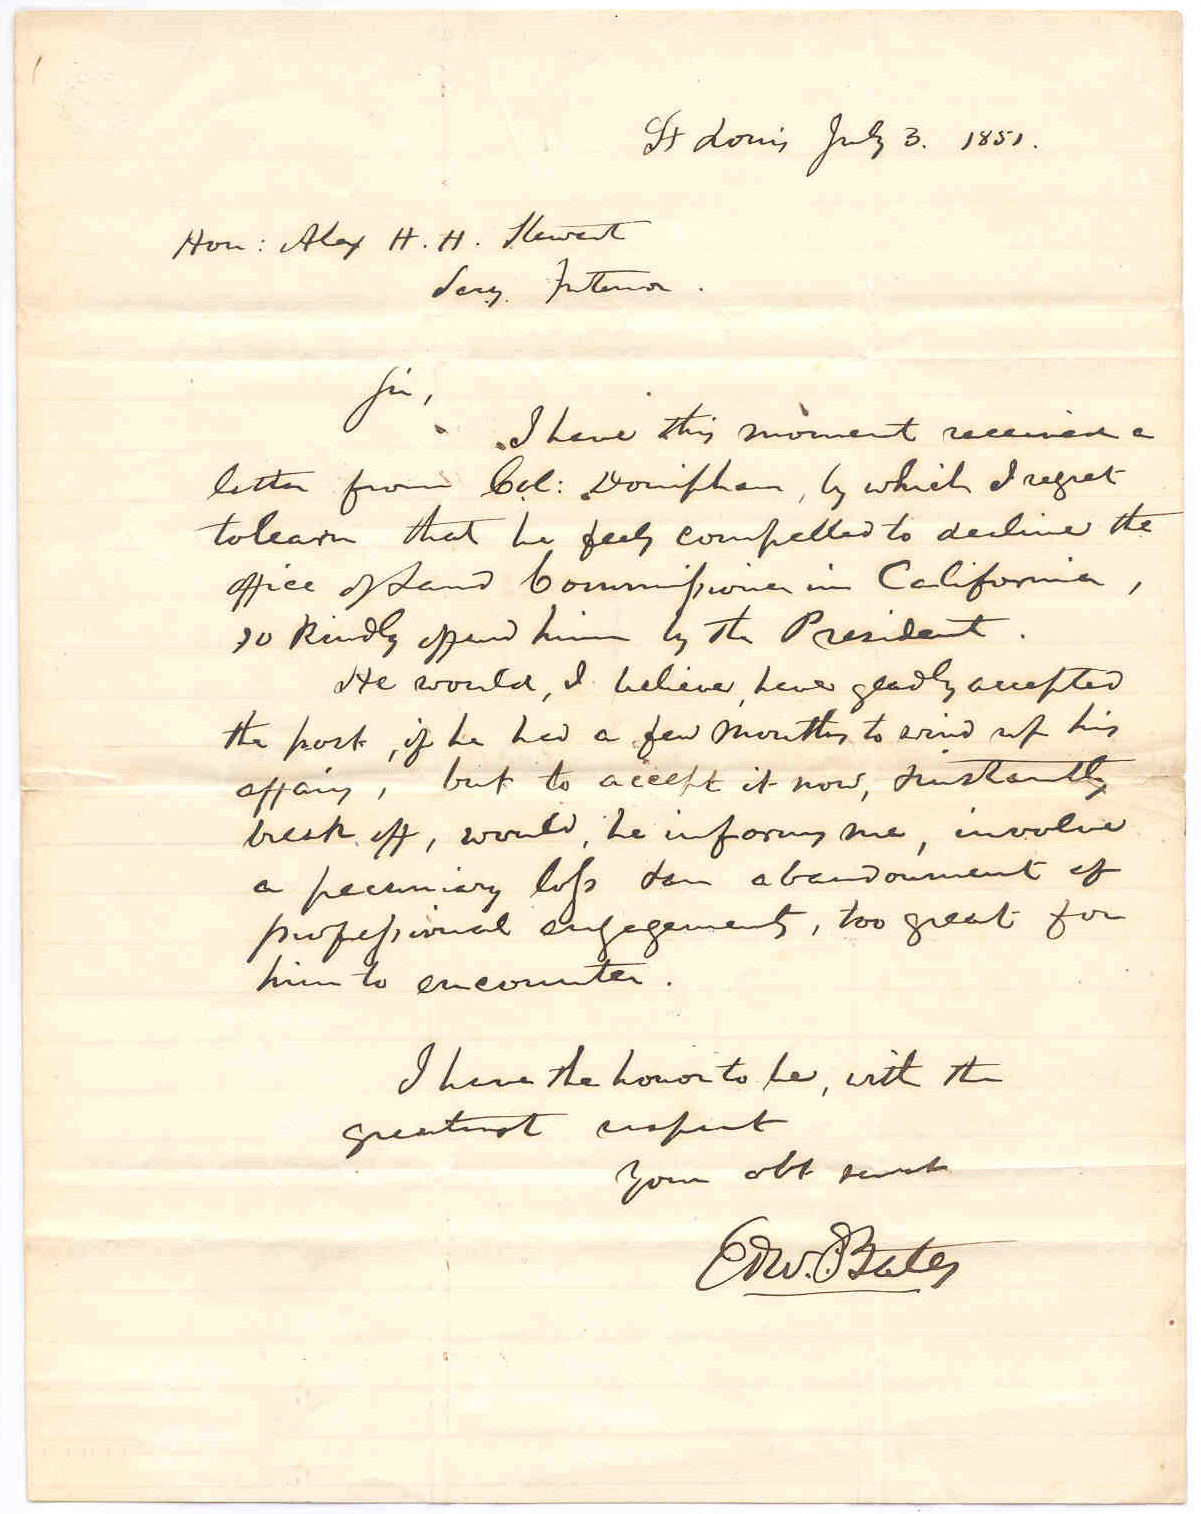 St Louis July 3. 1851.
Hon: Alex H. H. Stewart
Secy. Interior.
Sir,
I have this moment received a
letter from Col: Doniphan, by which I regret
to learn that he feels compelled to decline the
office of Land Commissioner in California,
so kindly offered him by the President.
He would, I believe, have gladly accepted
the post, if he had a few months to wind up his
affairs, but to accept it now, & instantly
break off, would, he informs me, involve
a pecuniary loss & an abandonment of
professional engagements, too great for
him to encounter.
I have the honor to be, with the
greatest respect
Your obt servt
Edw. Bates